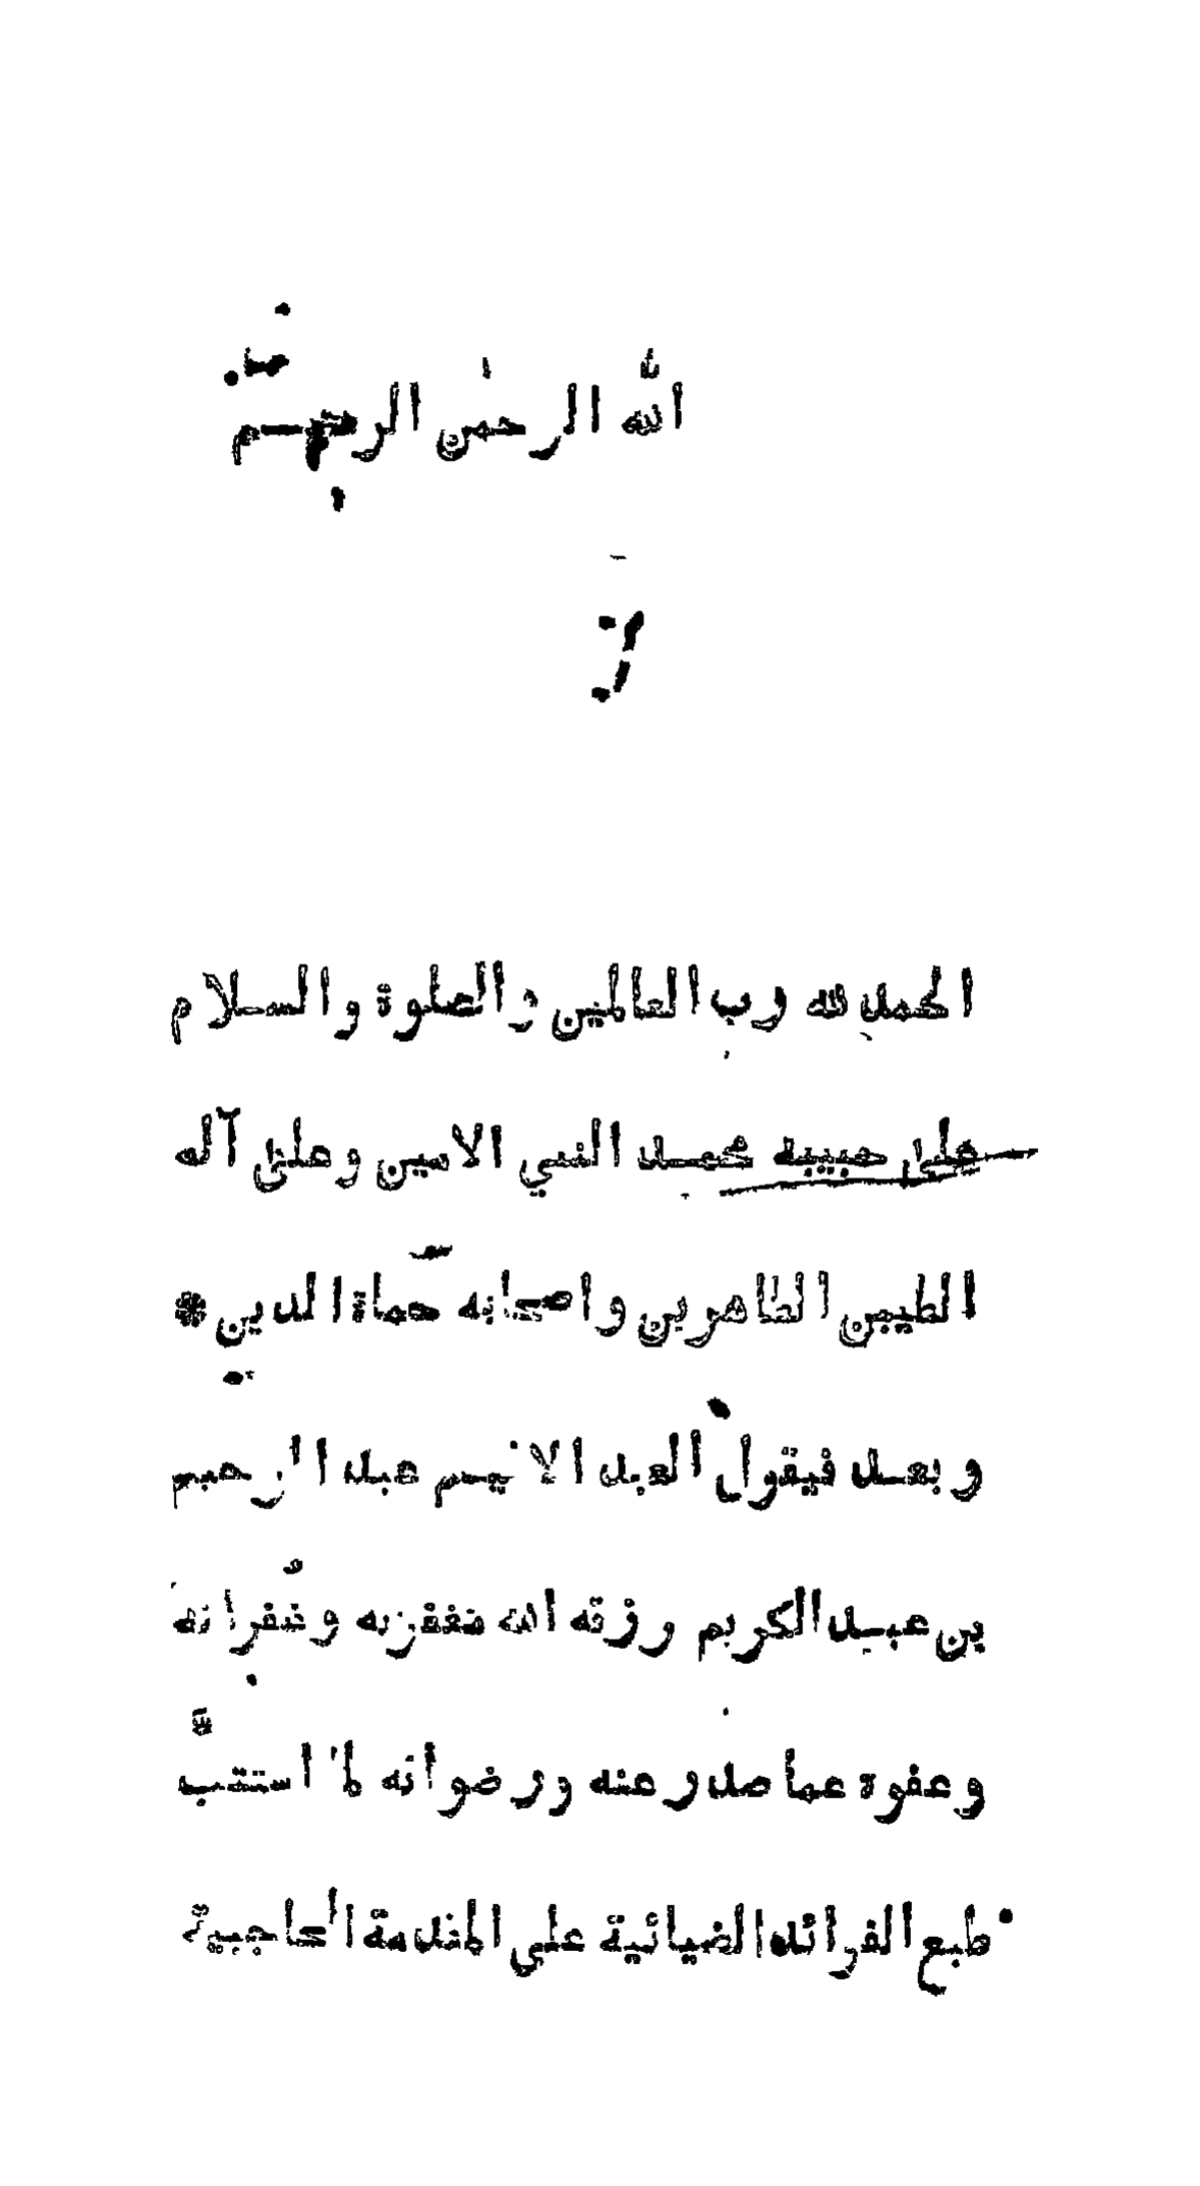 الله الرحمن الرحيم
الحمد لله رب العالمين والصلوة والسلام
على حبيبه محمد النبي الامين وعلى آله
الطيبين الطاهرين واصحابه حماة الدين *
وبعد فيقول العبد الاثيم عبد الرحيم
بن عبد الكريم رزقه الله مغفرته وغفرانه
وعفوه عما صدر عنه ورضوانه لما استتب
طبع الفوائد الضيائية على المقدمة الحاجبية